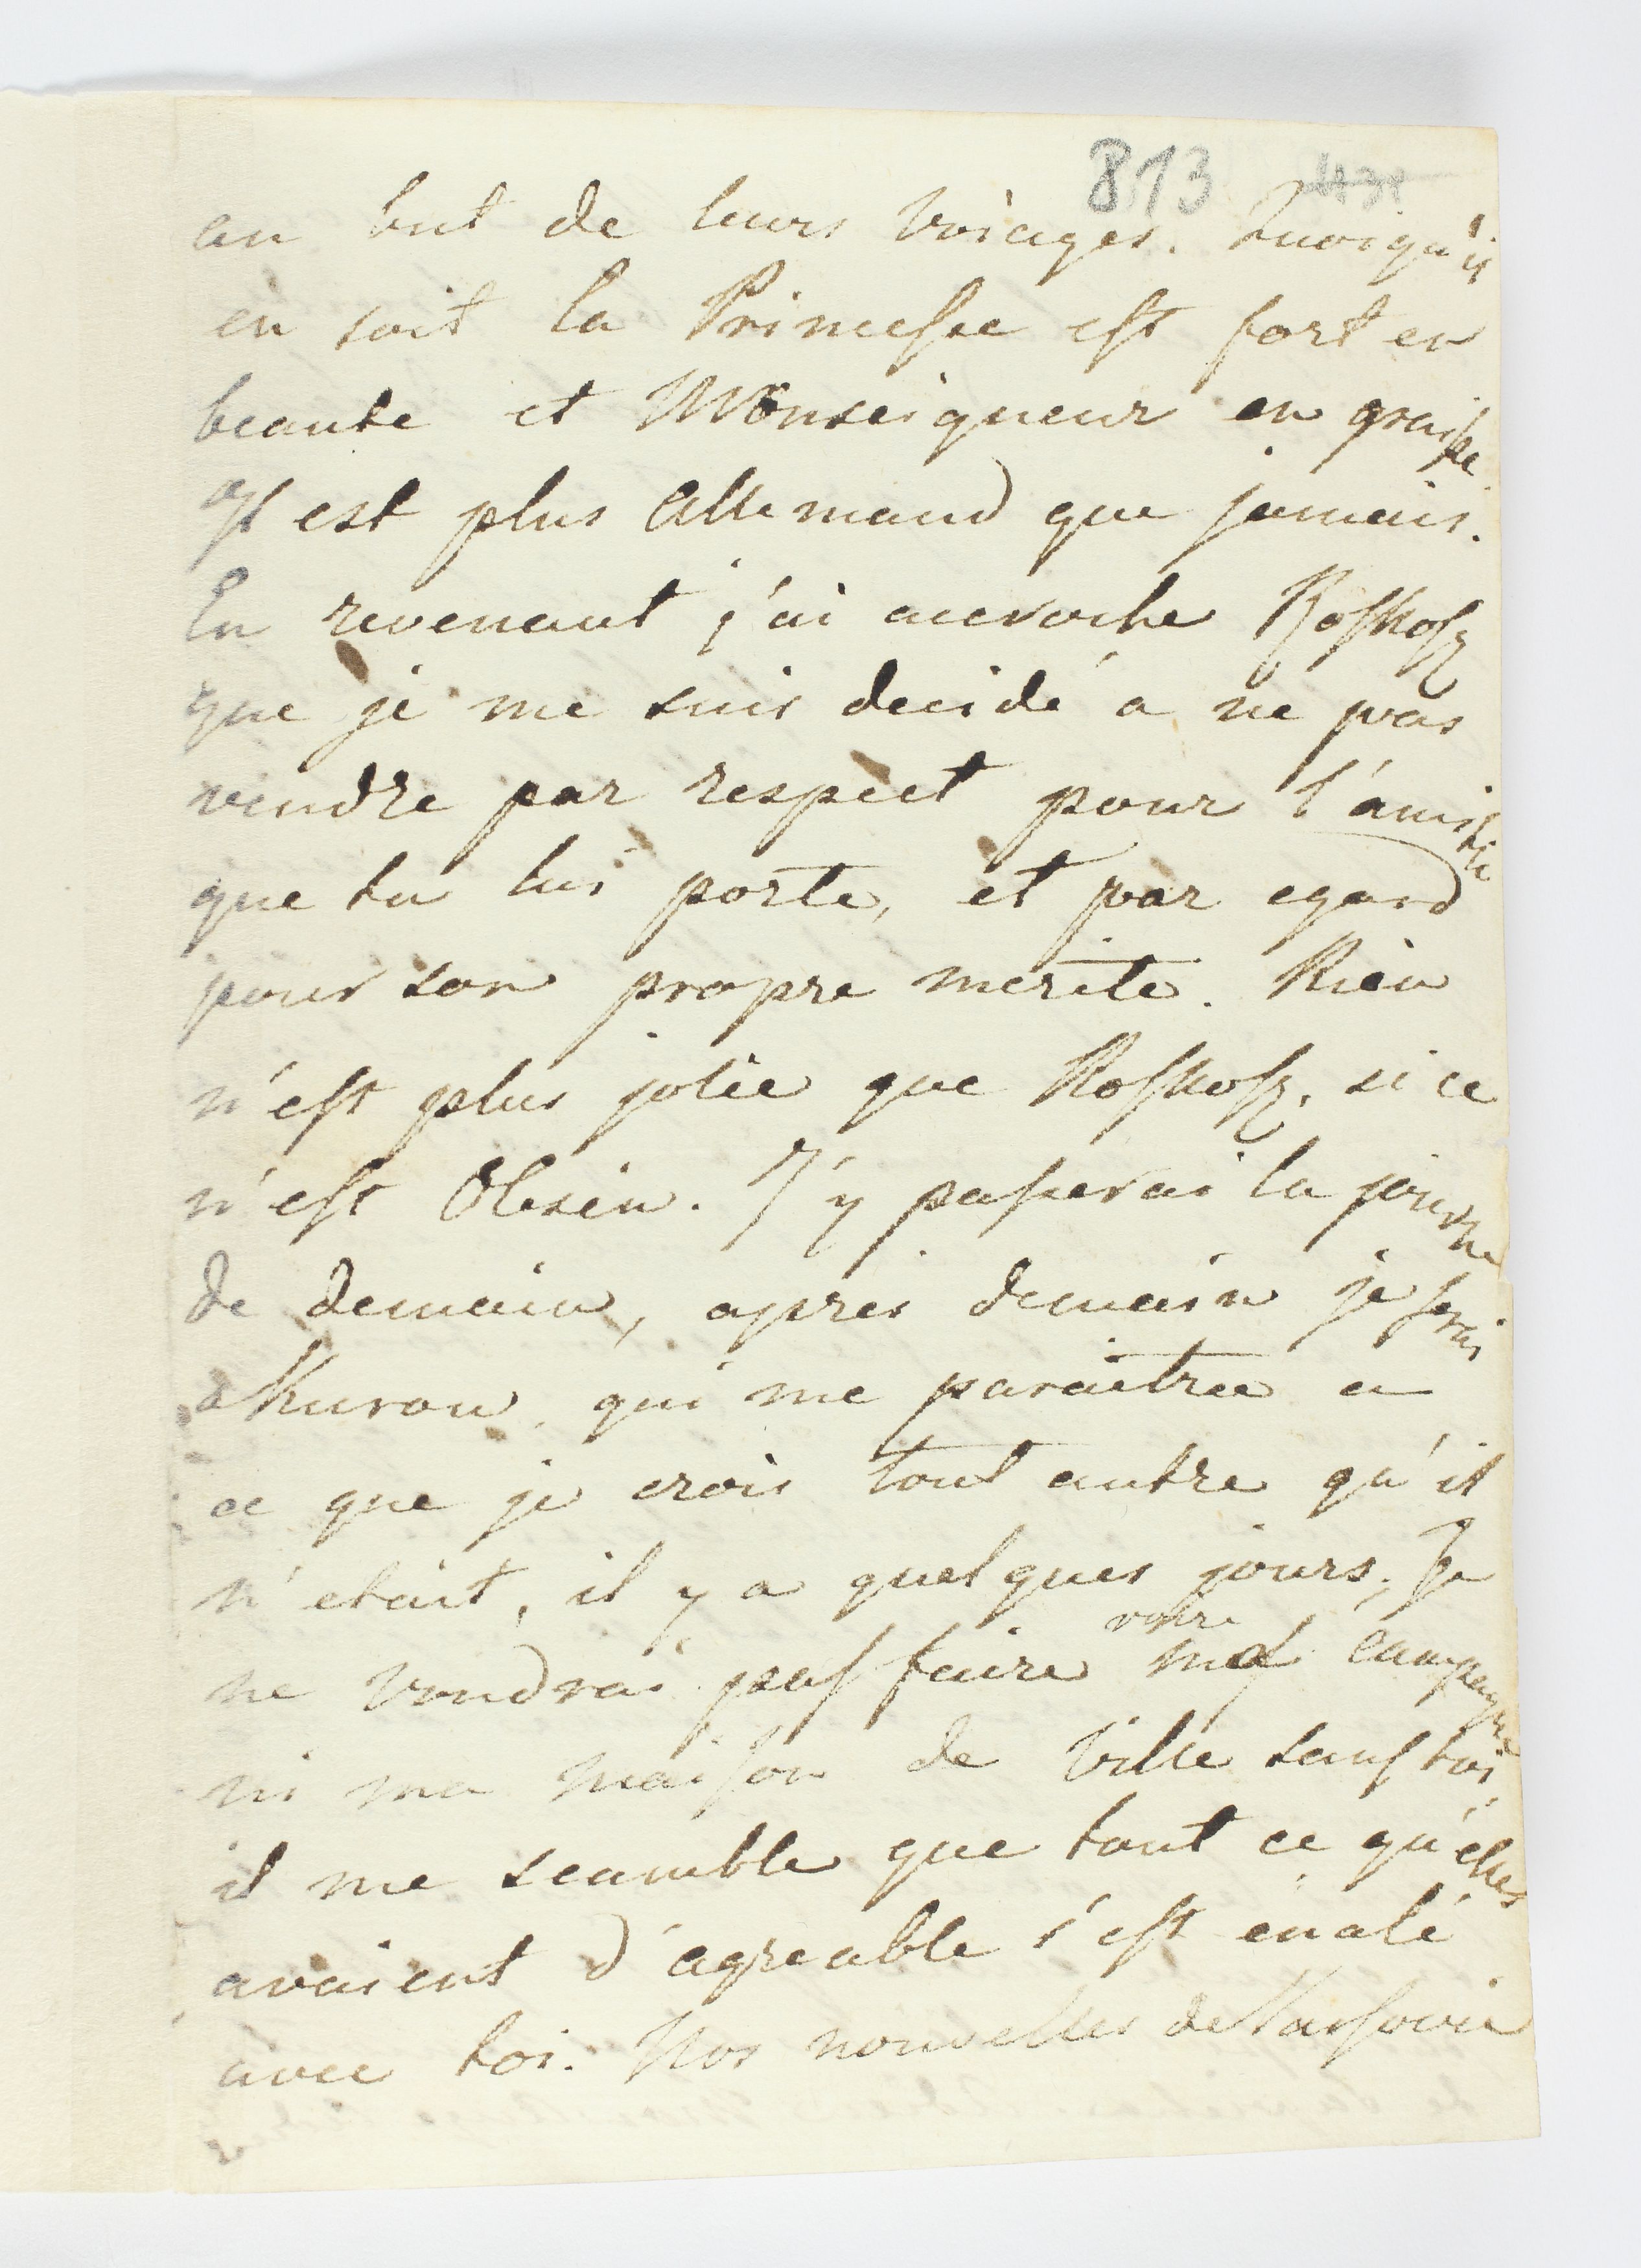 813 431
au but de leurs voiages. Quoiqu'il
en soit la Princesse est fort en
beaute et Monseigneur en graisse.
Il est plus Allemand que jamais.
En revenant j'ai accroche Roskosz
que je me suis decidé a ne pas
vendre par respect pour l'amitie
que tu lui porte, et par egard
pour son propre merite. Rien
n'est plus jolie que Roskosz, si ce
n'est Olesin. J'y passerai la journe
de demain, apres demain je serai
a Kurow, qui me paraitra a
ce que je crois tout autre qu'il
n'etait, il y a quelques jours. Je
ne vendrai pas faire votre campagne
ni ma maison de Ville sans toi,
il me seamble que tout ce qu'elles
avaient d'agreable s'est enalé
avec toi. Nos nouvelles de Varsovie